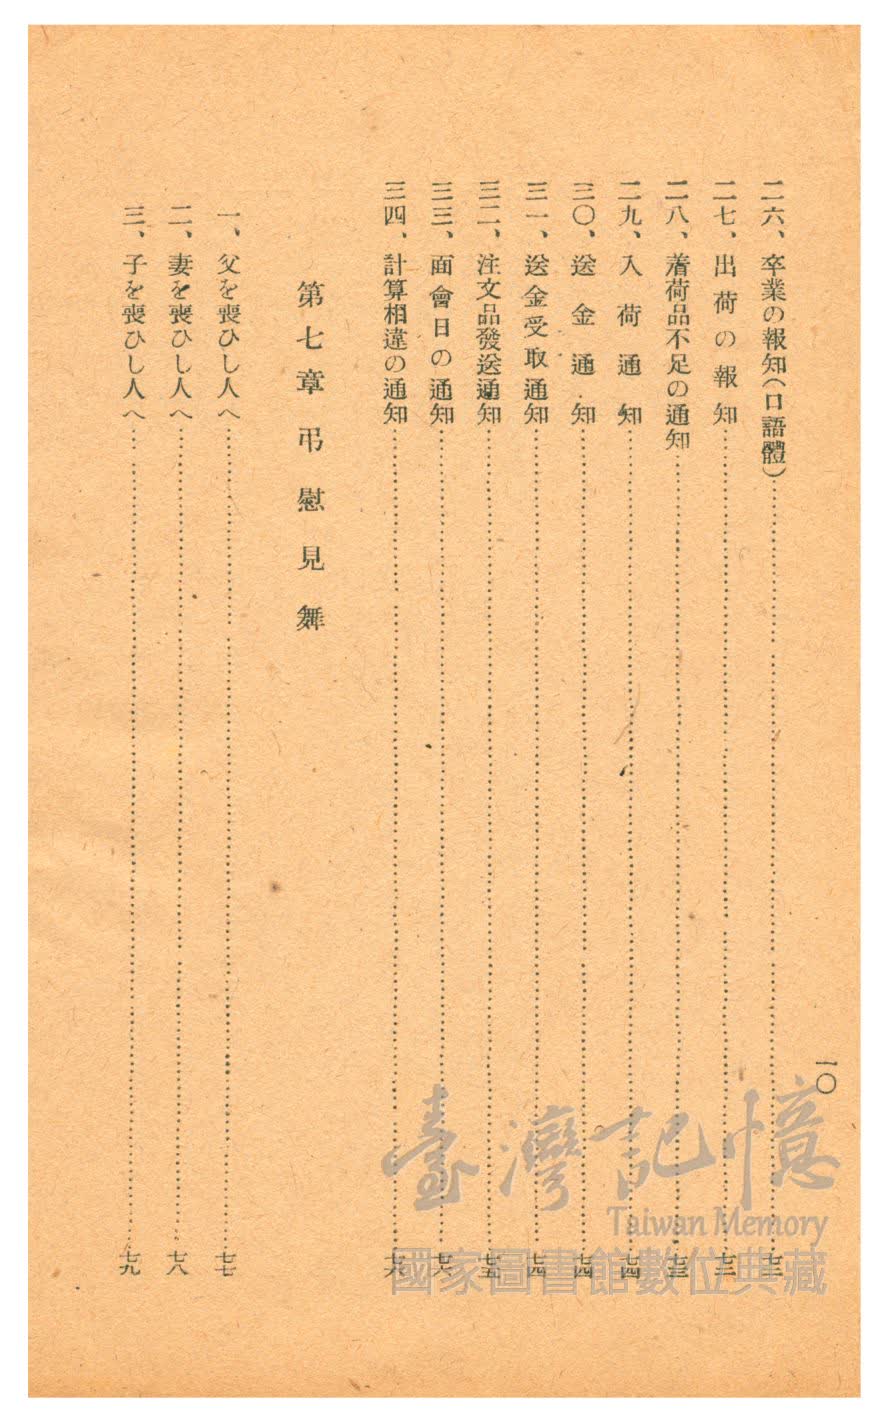 一〇
二六、卒業の報知(口語體)……七三
二七、出荷の報知……七三
二八、着荷品不足の通知……七三
二九、入荷通知……七四
三〇、送金通知……七四
三一、送金受取通知……七四
三二、注文品發送通知……七五
三三、面會日の通知……七六
三四、計算相違の通知……七六
第七章 弔慰見舞
一、父を喪ひし人へ……七七
二、妻を喪ひし人へ……七八
三、子を喪ひし人へ……七九
臺灣記憶
Taiwan Memory
國家圖書館數位典藏